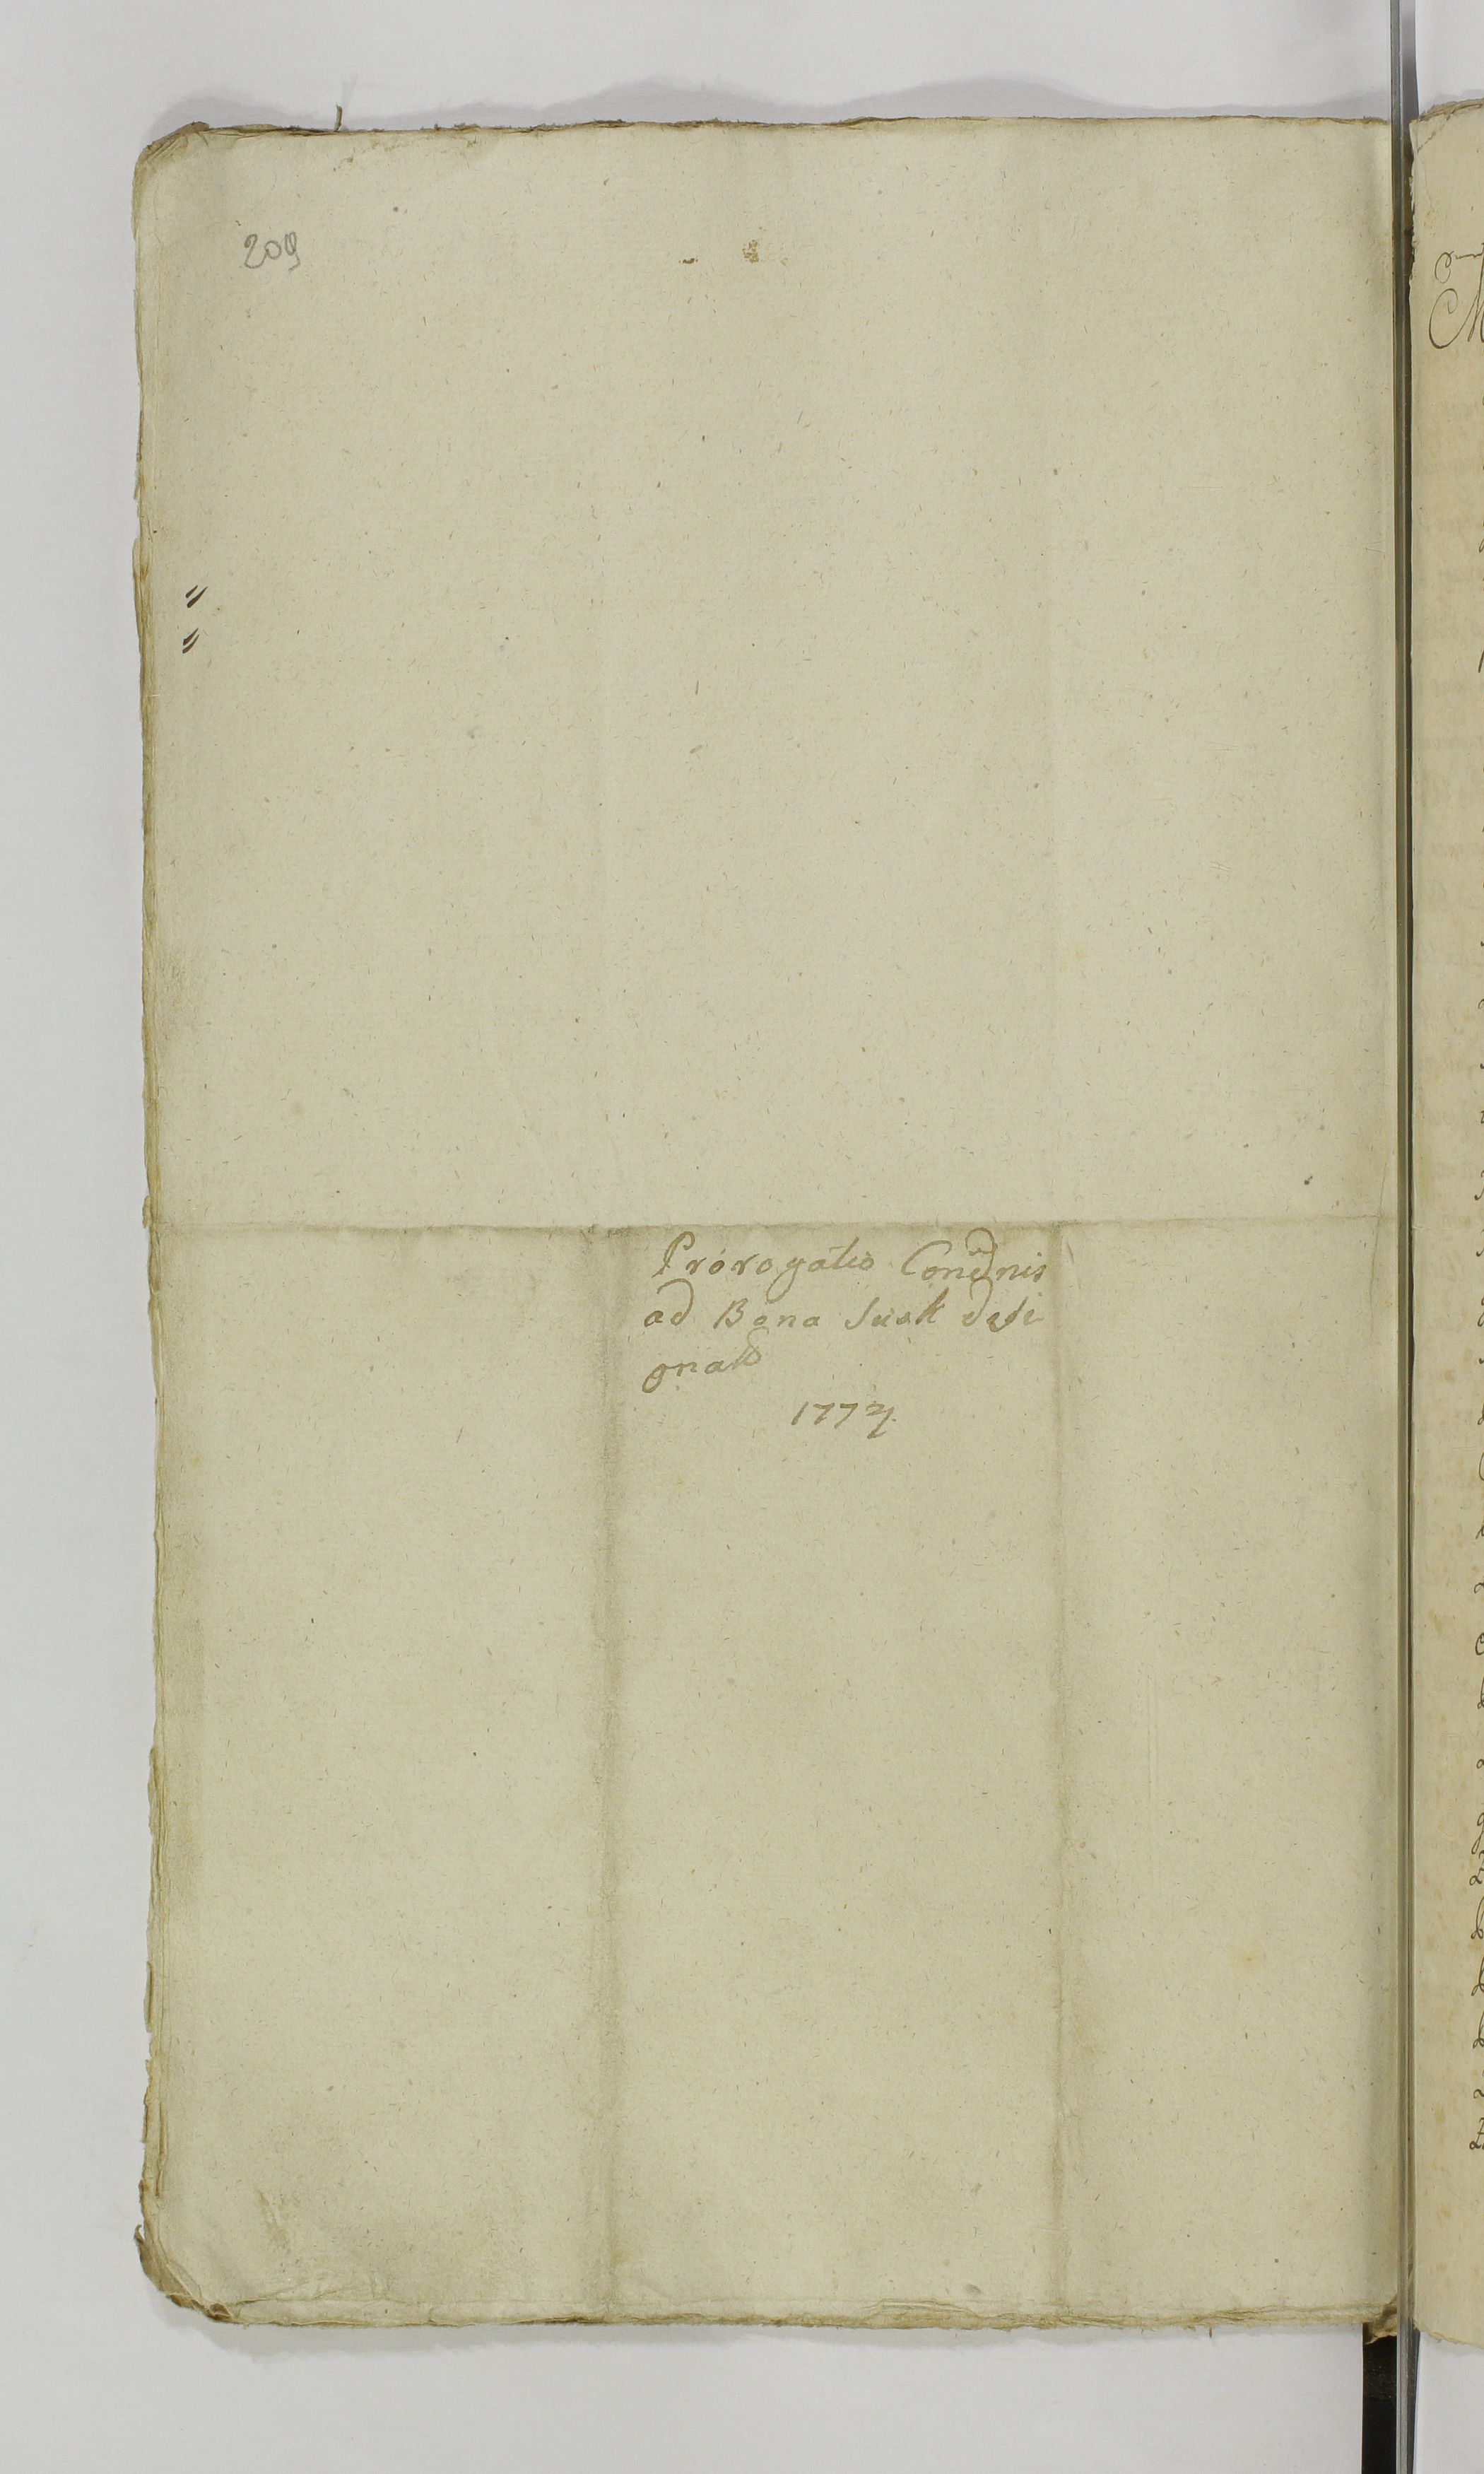 209
Prorogatio Condnis
ad Bona Susk desi
gnatö
1772